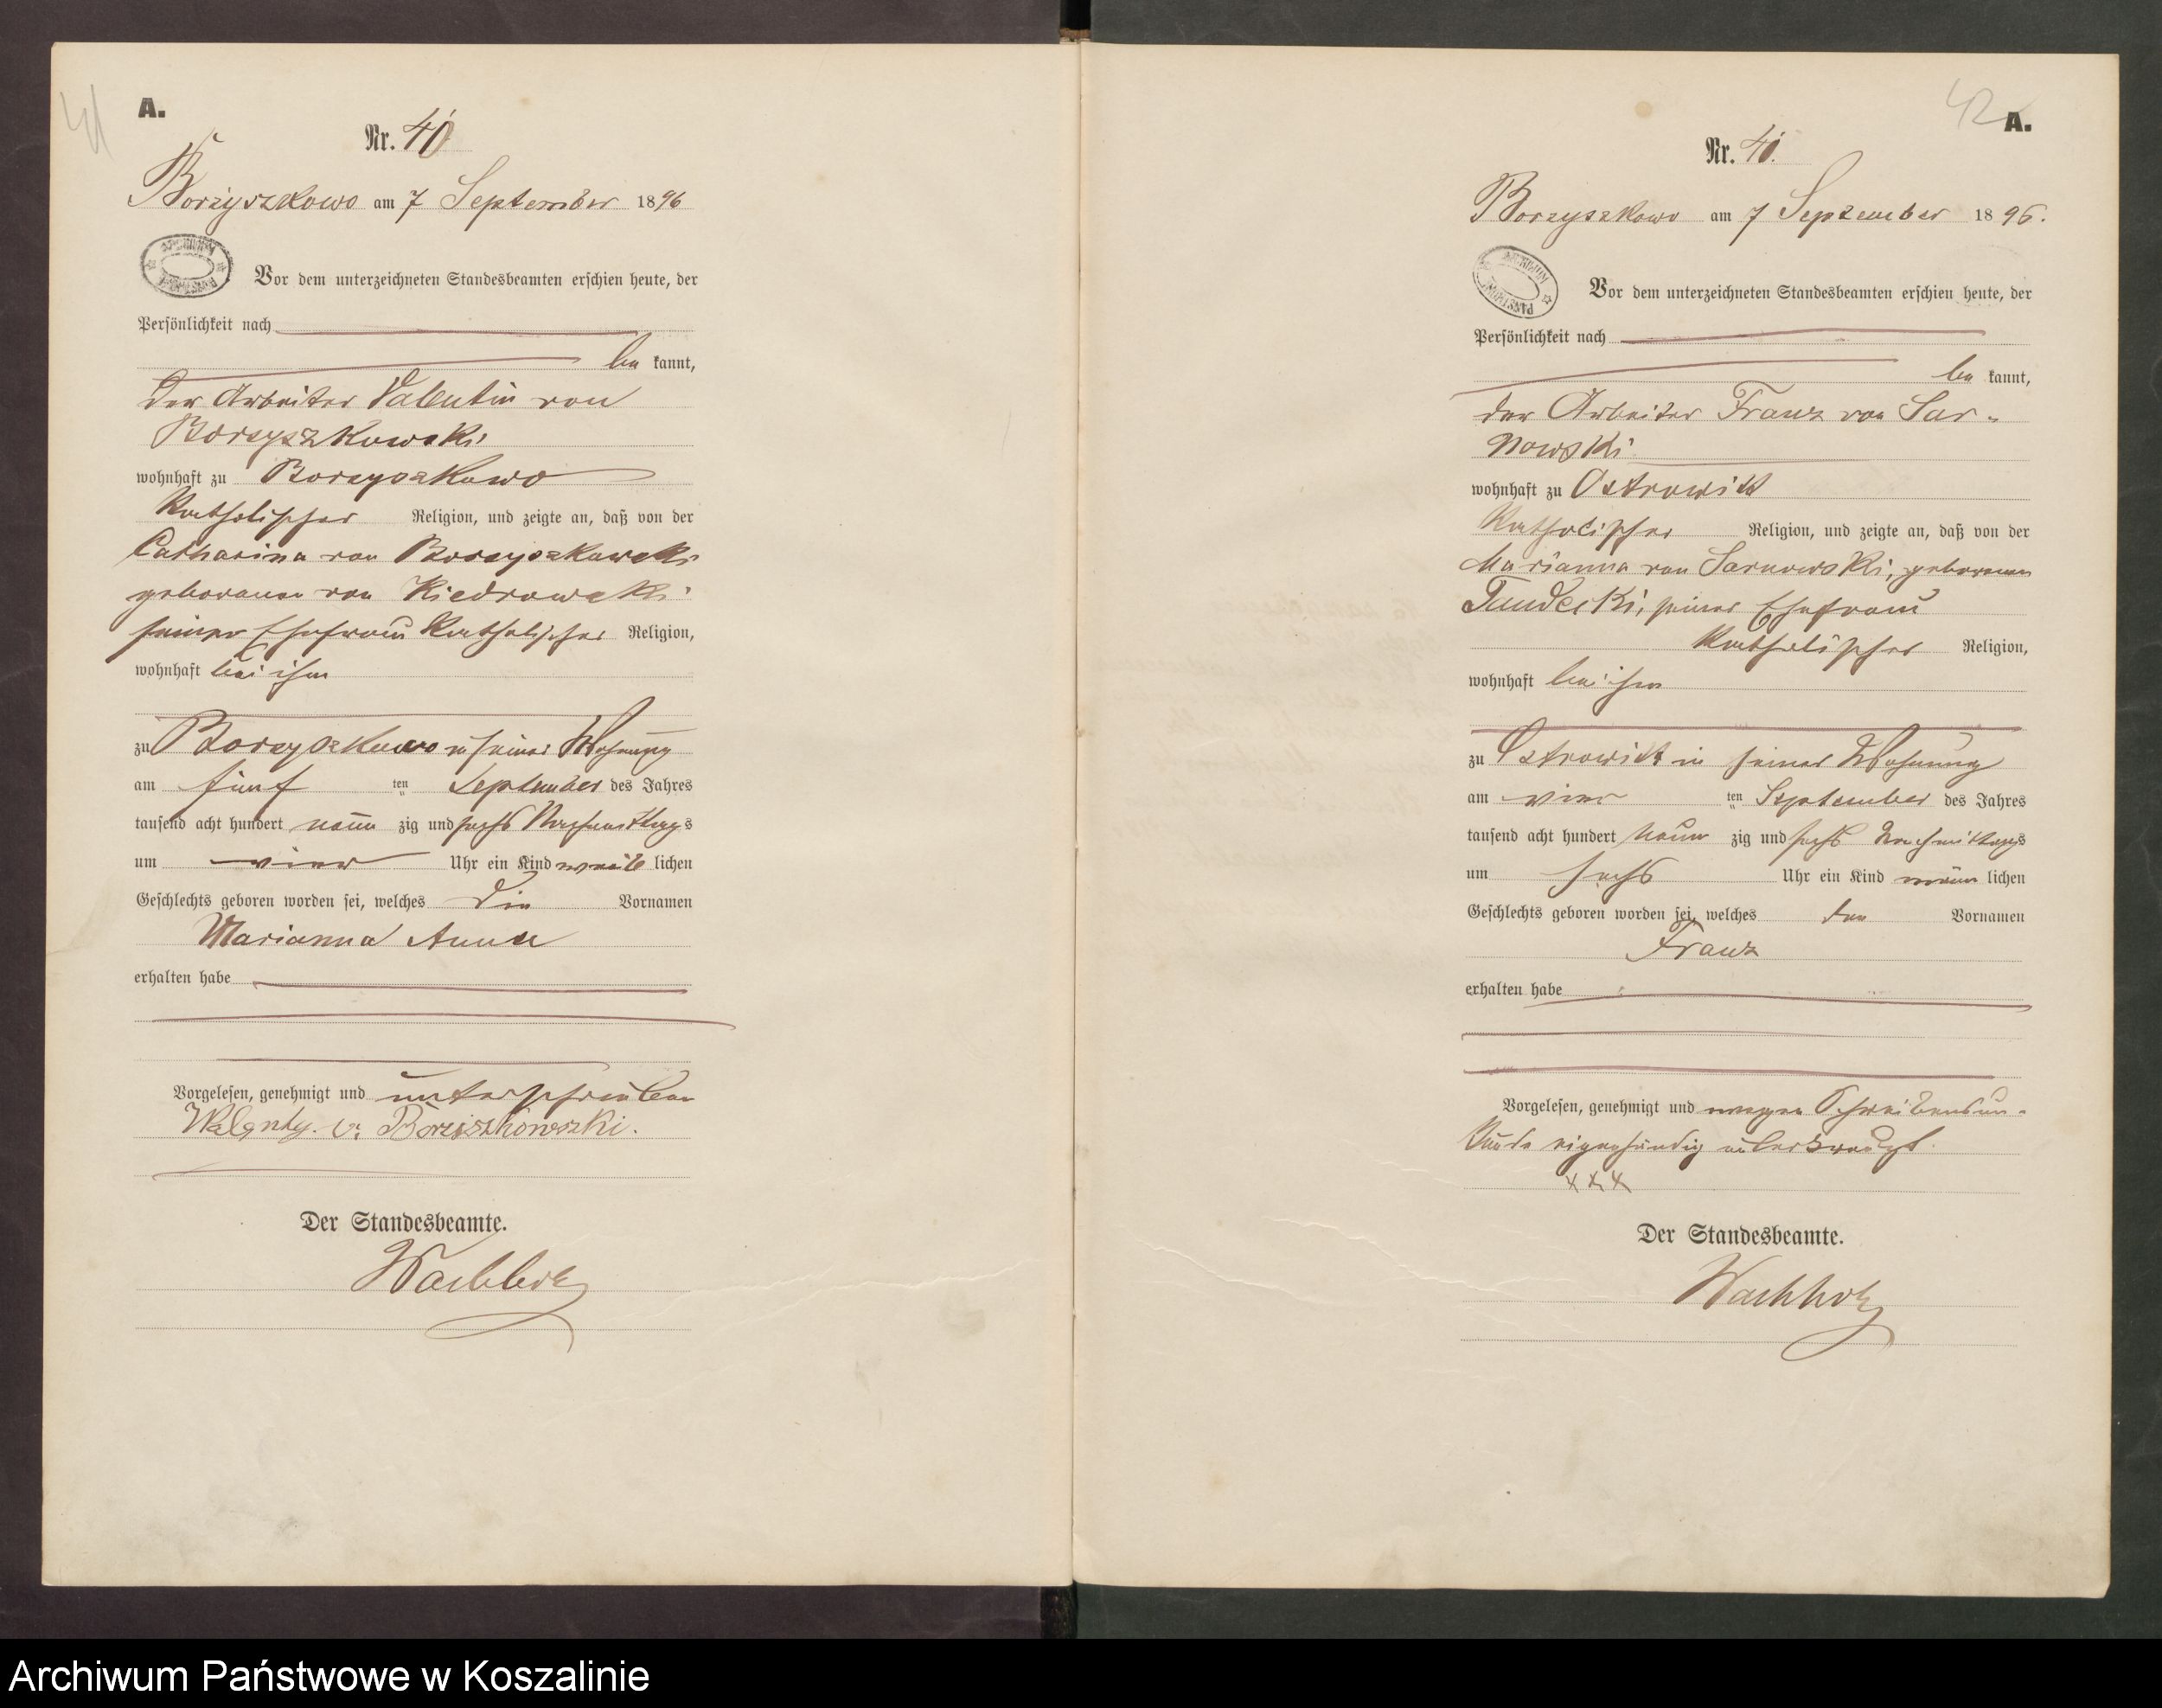 41
A.
Nr. 40
Borzyszkowo am 7 September 1896
ARCHIWUM
Vor dem unterzeichneten Standesbeamten erschien heute, der
Persönlichkeit nach
be kannt,
der Arbeiter Valentin von
Borzyszkowski
wohnhaft zu Borzyszkowo
katholischer Religion, und zeigte an, daß von der
Catharina von Borzyszkowski
geborenen von Kiedrowski
seiner Ehefrau katholischer Religion,
wohnhaft bei ihm
zu Borzyszkowo in seiner Wohnung
am fünf ten September des Jahres
tausend acht hundert neun zig und sechs Nachmittags
um vier Uhr ein Kind weib lichen
Geschlechts geboren worden sei, welches die Vornamen
Marianna Anna
erhalten habe
Vorgelesen, genehmigt und unterschrieben
Walenty. v. Borziszkowszki.
Der Standesbeamte.
Wachholz
42
A.
Nr. 41.
Borzyszkowo am 7 September 1896.
ARCHIWUM PAŃSTWOWE
Vor dem unterzeichneten Standesbeamten erschien heute, der
Persönlichkeit nach
be kannt,
der Arbeiter Franz von Sar-
nowski
wohnhaft zu Ostrowitt
katholischer Religion, und zeigte an, daß von der
Marianna von Sarnowski, geborenen
seiner Ehefrau
katholischer Religion,
wohnhaft bei ihm
zu Ostrowitt in seiner Wohnung
am vier ten September des Jahres
tausend acht hundert neun zig und sechs Nachmittags
um sechs Uhr ein Kind männ lichen
Geschlechts geboren worden sei, welches den Vornamen
Franz
erhalten habe
Vorgelesen, genehmigt und wegen Schreibensun-
kunde eigenhändig unterkreuzt.
xxx
Der Standesbeamte.
Wachholz
Archiwum Państwowe w Koszalinie